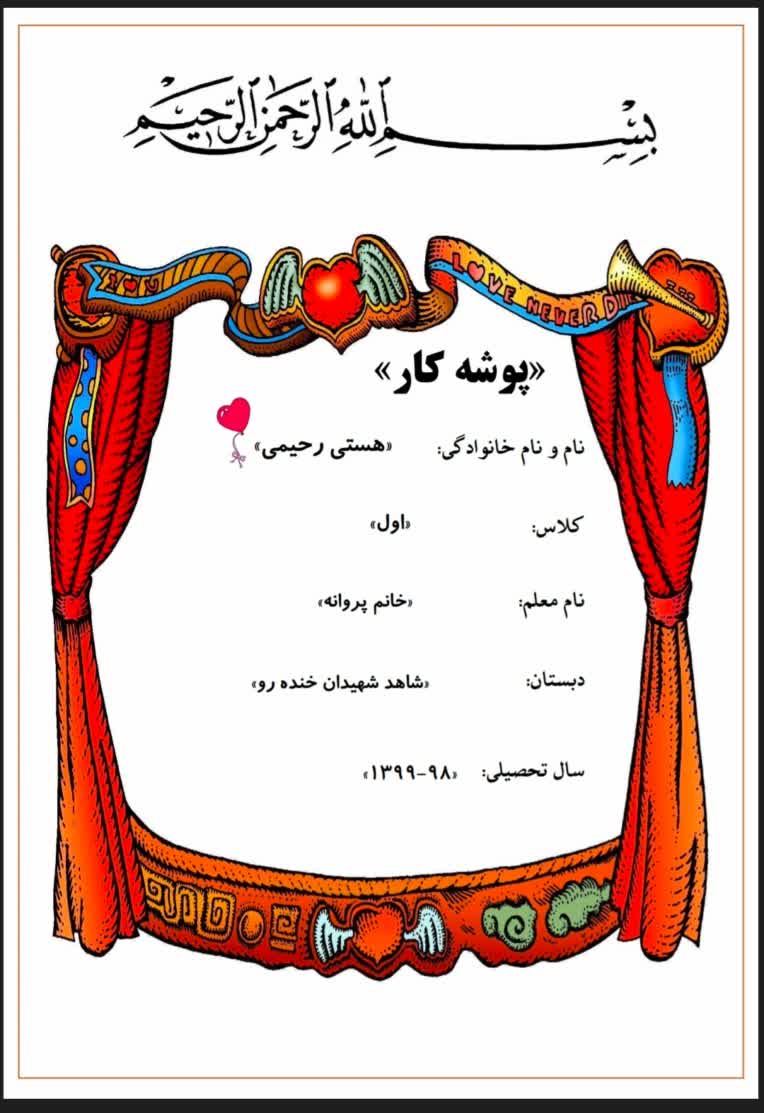 بِسْمِ اللهِ الرَّحْمنِ الرَّحيمِ
LOVE NEVER D
«پوشه کار»
نام و نام خانوادگی: «هستی رحیمی»
کلاس: «اول»
نام معلم: «خانم پروانه»
دبستان: «شاهد شهیدان خنده رو»
سال تحصیلی: «۱۳۹۹-۹۸»